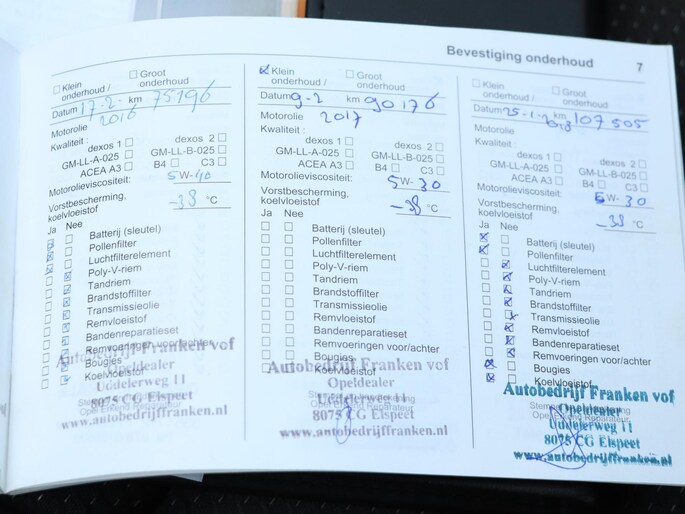 Bevestiging onderhoud 7
Klein onderhoud / Groot onderhoud
Datum 17-2-2016 km 75196
Motorolie
Kwaliteit:
dexos 1 dexos 2
GM-LL-A-025 GM-LL-B-025
ACEA A3 B4 C3
Motorolieviscositeit: 5W-40
Vorstbescherming,
koelvloeistof -38 °C
Ja Nee
Batterij (sleutel)
Pollenfilter
Luchtfilterelement
Poly-V-riem
Tandriem
Brandstoffilter
Transmissieolie
Remvloeistof
Bandenreparatieset
Remvoeringen voor/achter
Bougies
Koelvloeistof
Autobedrijf Franken vof
Opeldealer
Uddelerweg 11
8075 CG Elspeet
www.autobedrijffranken.nl
Klein onderhoud / Groot onderhoud
Datum 9-2 2017 km 90176
Motorolie
Kwaliteit:
dexos 1 dexos 2
GM-LL-A-025 GM-LL-B-025
ACEA A3 B4 C3
Motorolieviscositeit: 5W-30
Vorstbescherming,
koelvloeistof -38 °C
Ja Nee
Batterij (sleutel)
Pollenfilter
Luchtfilterelement
Poly-V-riem
Tandriem
Brandstoffilter
Transmissieolie
Remvloeistof
Bandenreparatieset
Remvoeringen voor/achter
Bougies
Koelvloeistof
Autobedrijf Franken vof
Opeldealer
Uddelerweg 11
8075 CG Elspeet
www.autobedrijffranken.nl
Klein onderhoud / Groot onderhoud
Datum 25-1-2018 km 107505
Motorolie
Kwaliteit:
dexos 1 dexos 2
GM-LL-A-025 GM-LL-B-025
ACEA A3 B4 C3
Motorolieviscositeit: 5W-30
Vorstbescherming,
koelvloeistof -38 °C
Ja Nee
Batterij (sleutel)
Pollenfilter
Luchtfilterelement
Poly-V-riem
Tandriem
Brandstoffilter
Transmissieolie
Remvloeistof
Bandenreparatieset
Remvoeringen voor/achter
Bougies
Koelvloeistof
Autobedrijf Franken vof
Opeldealer
Uddelerweg 11
8075 CG Elspeet
www.autobedrijffranken.nl